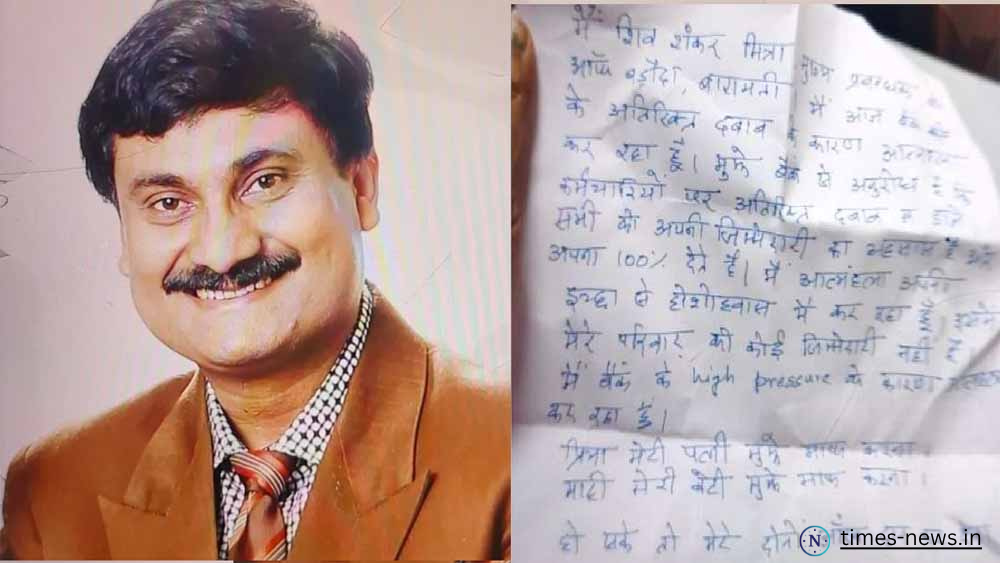 मैं शिव शंकर मित्रा मुख्य प्रबन्धक,
ऑफ बड़ौदा, बारामती मैं आज
के अतिरिक्त दबाव के कारण
कर रहा हूँ। मुझे बैंक से अनुरोध है कि
कर्मचारियों पर अतिरिक्त दबाव न डाले
सभी को अपनी जिम्मेदारी का अहसास है और
अपना 100% देते हैं। मैं आत्महत्या अपनी
इच्छा से होशोहवास में कर रहा हूँ, इसमें
मेरे परिवार की कोई जिम्मेदारी नहीं है।
मैं बैंक के high pressure के कारण
कर रहा हूँ।
मेरी पत्नी मुझे माफ करना
माही मेरी बेटी मुझे माफ करना।
हो सके तो मेरे दोनों
N times-news.in